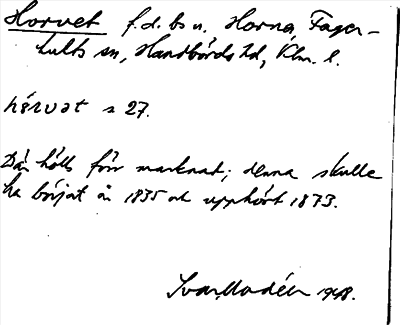 Horvet f.d. bs u. Horna, Fager-
hults sn, Handbörds hd, Klm. l.
hórvət s 27.
Där hölls förr marknad; denna skulle
ha börjat år 1835 och upphört 1873.
Ivar Modéer 1948.